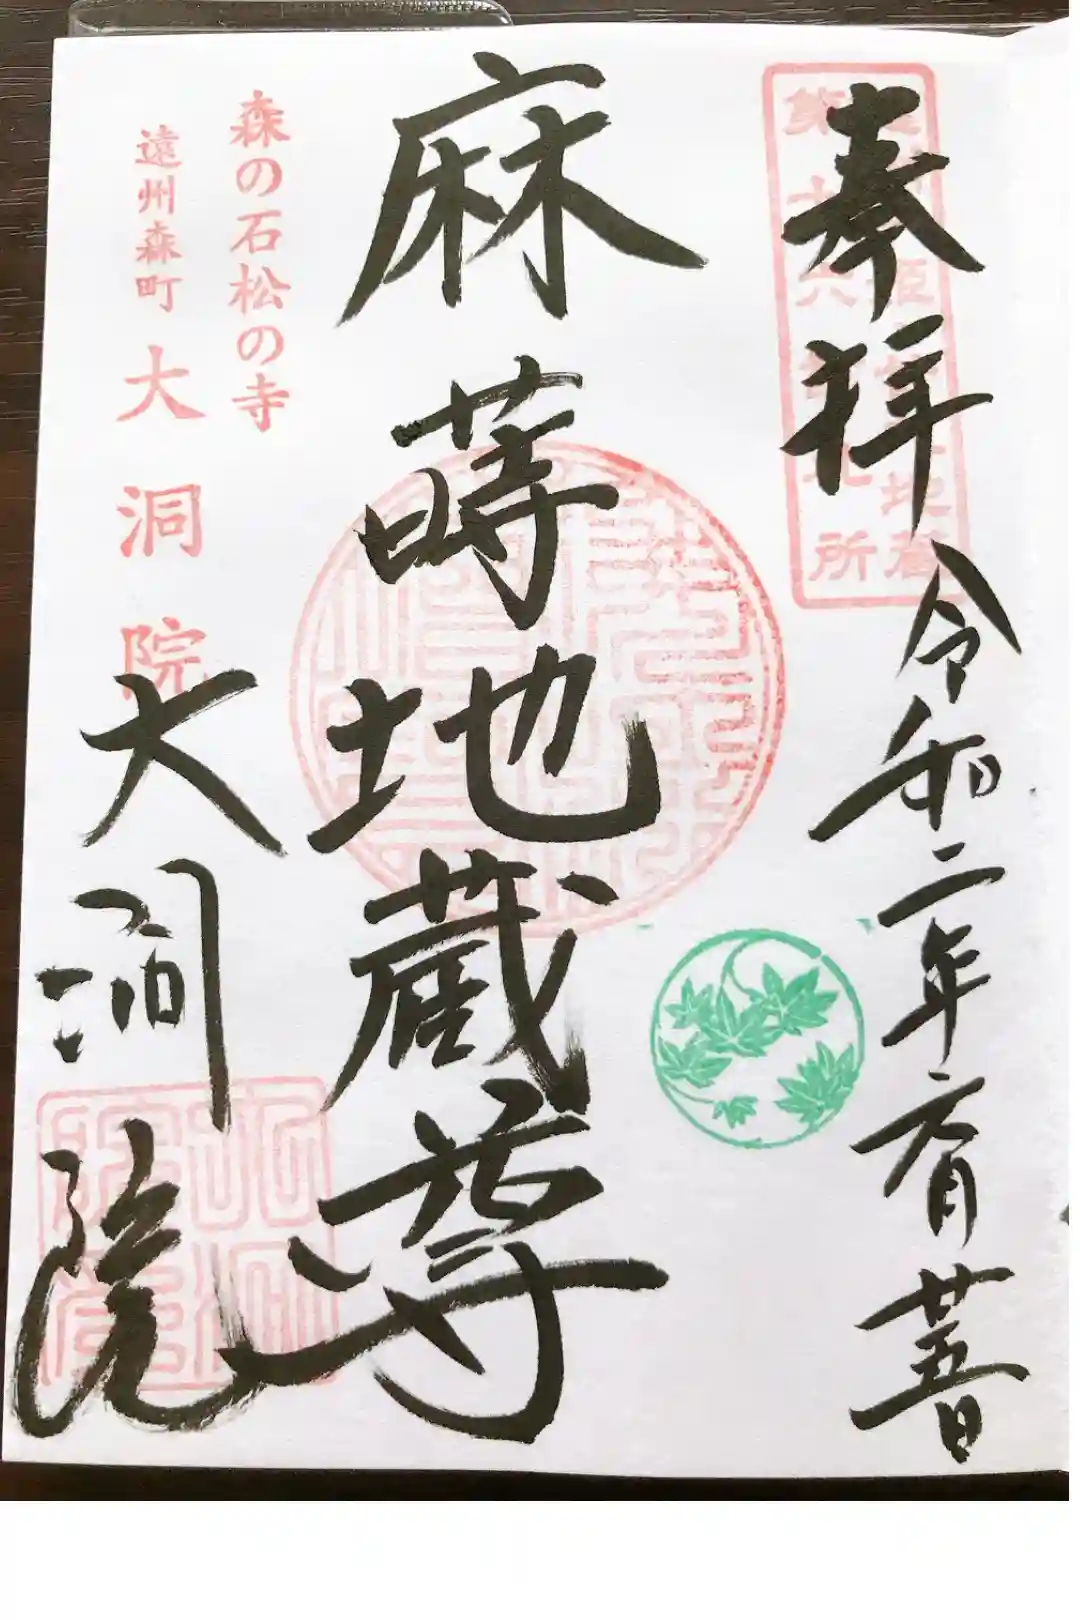 奉拝 令和二年六月廿五日
第十六番札所
麻蒔地蔵尊
森の石松の寺
遠州森町 大洞院
大洞院